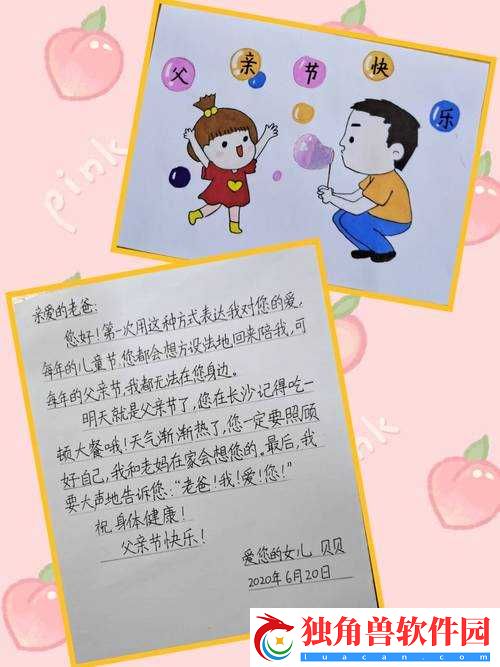 父亲节快乐
pink
亲爱的老爸:
您好!第一次用这种方式表达我对您的爱,
每年的儿童节您都会想方设法地回来陪我,可
每年的父亲节,我都无法在您身边。
明天就是父亲节了,您在长沙记得吃一
顿大餐哦!天气渐渐热了,您一定要照顾
好自己,我和老妈在家会想您的。最后,我
要大声地告诉您:“老爸!我!爱!您!”
祝身体健康!
父亲节快乐!
爱您的女儿 贝贝
2020年6月20日
pink
独角兽软件园
luacan.com